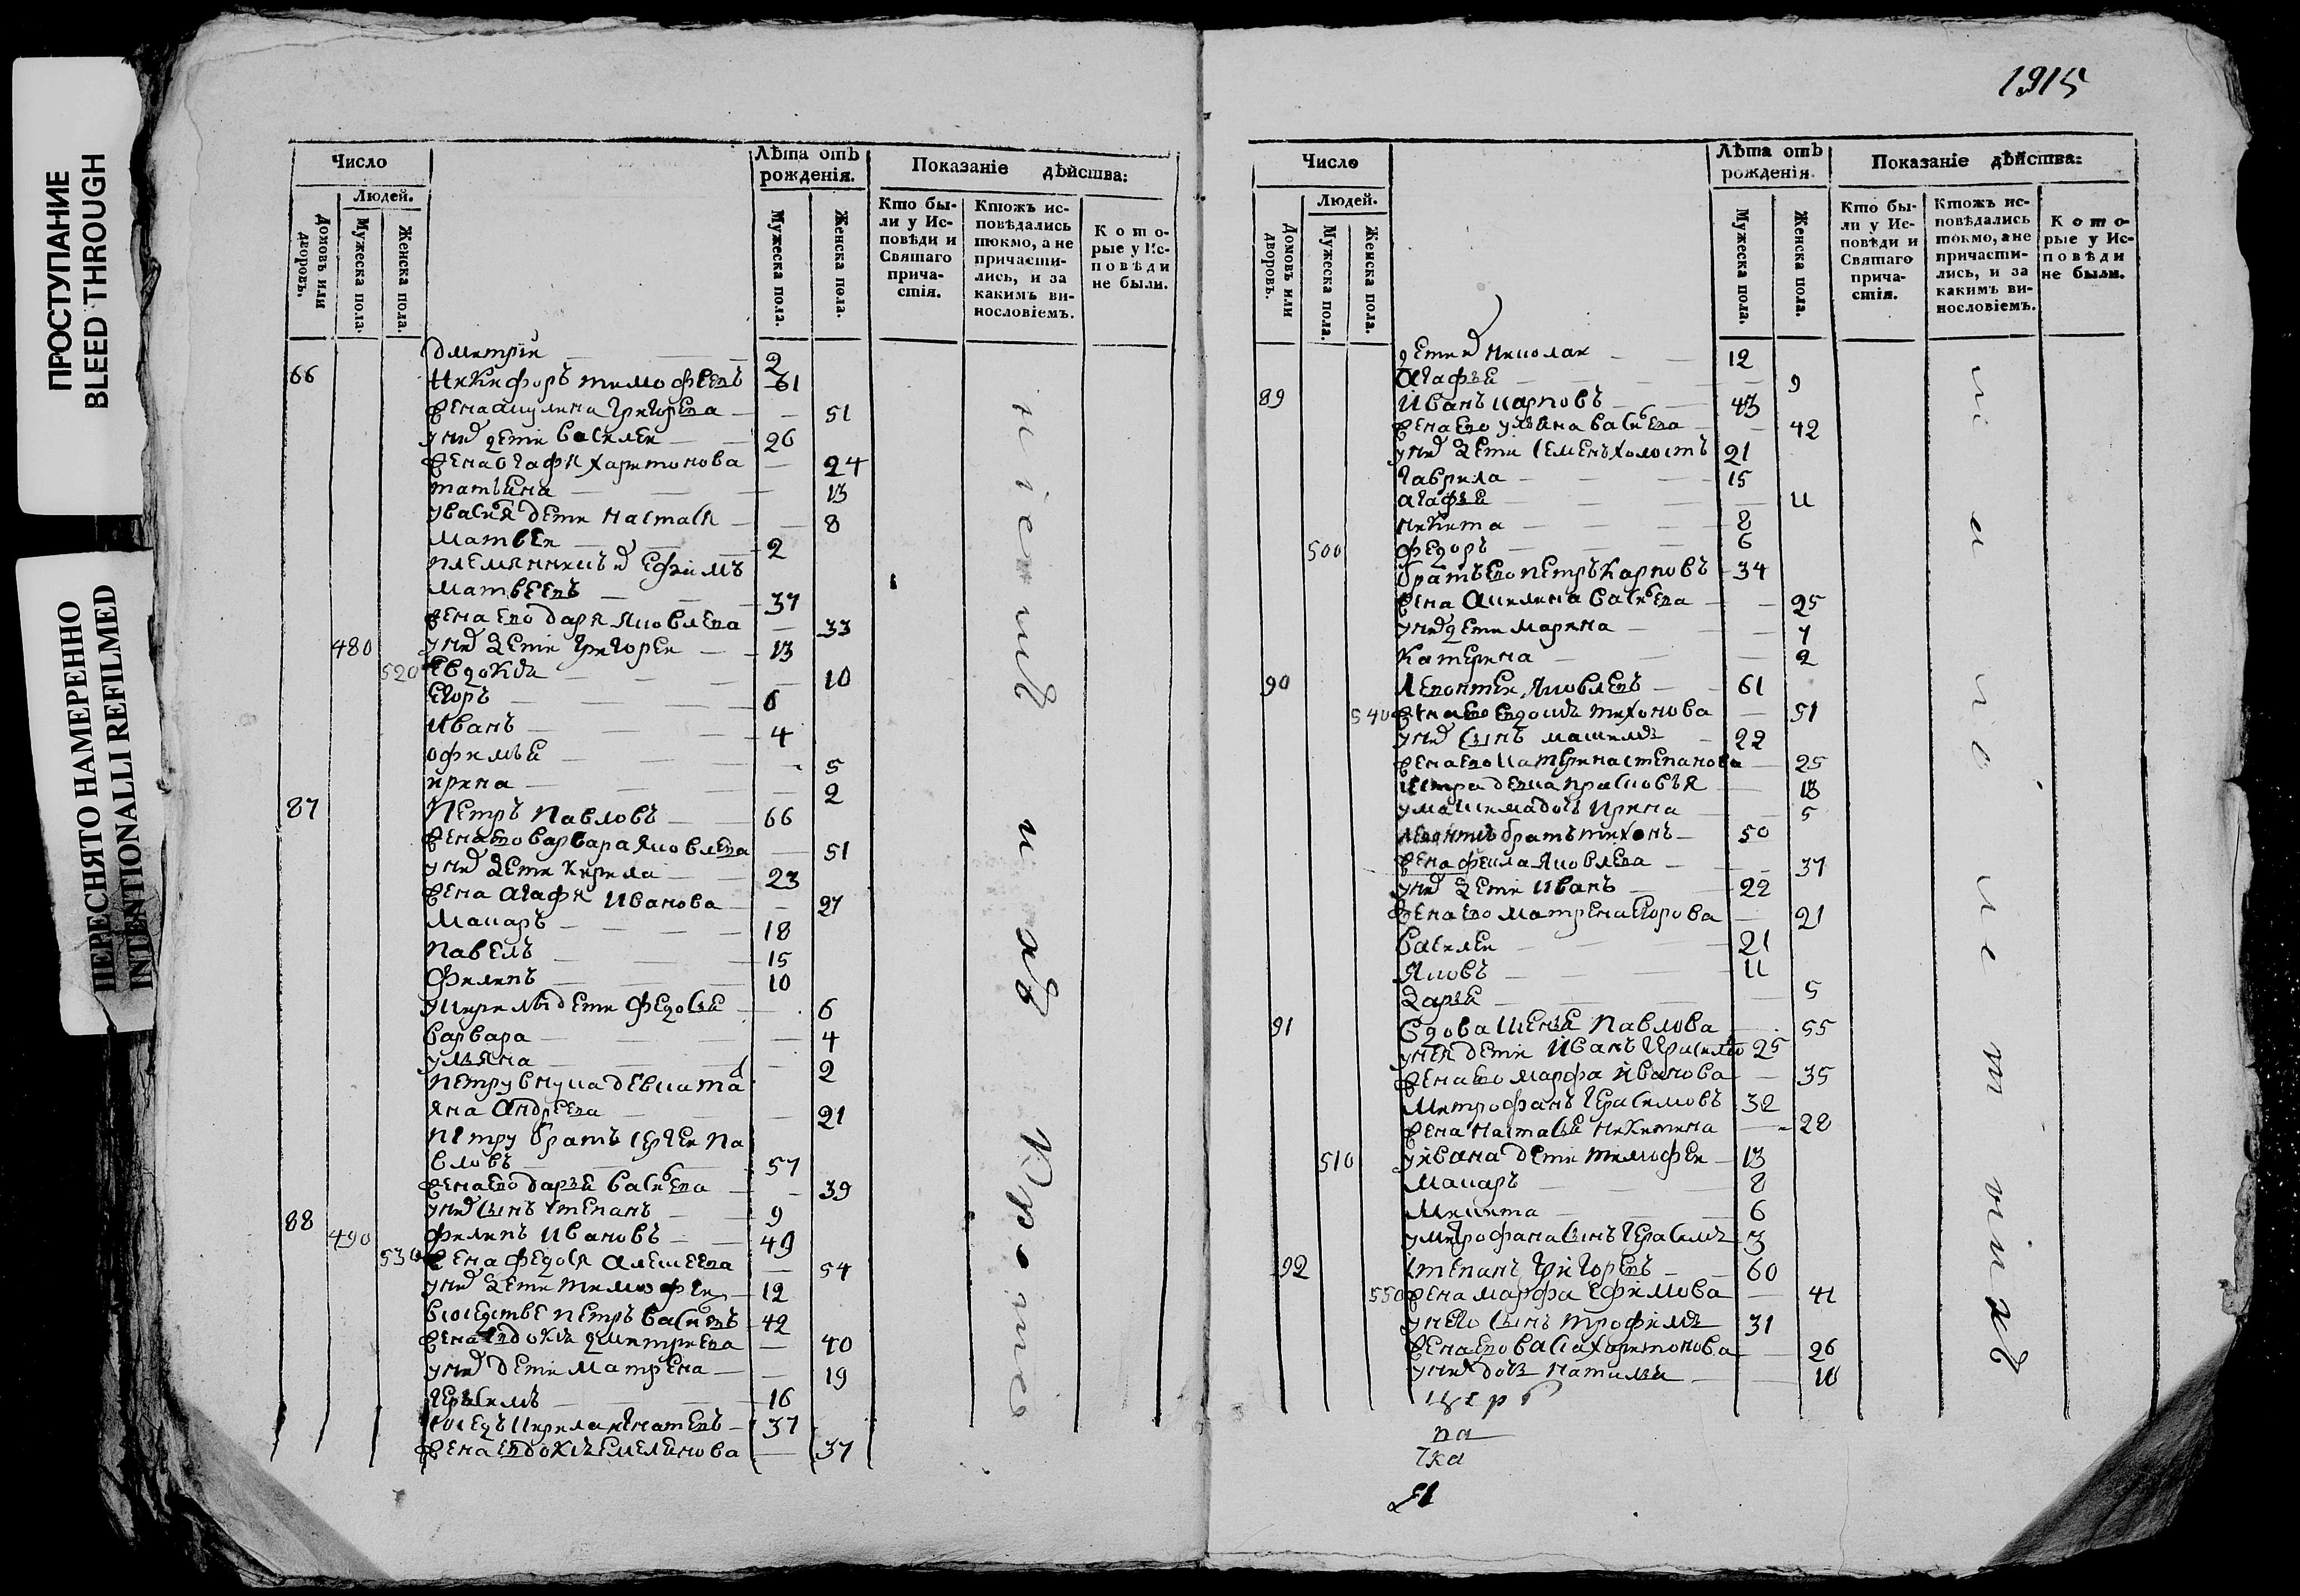 ПРОСТУПАНИЕ
BLEED THROUGH
ПЕРЕСНЯТО НАМЕРЕННО
INTENTIONALLI REFILMED
Число
Лѣта отъ рожденія.
Показаніе дѣйства:
Людей.
Домовъ или дворовъ.
Мужеска пола.
Женска пола.
Мужеска пола.
Женска пола.
Кто бы-
ли у Ис-
повѣди и
Святаго
прича-
стія.
Ктожъ ис-
повѣдались
токмо, а не
причасти-
лись, и за
какимъ ви-
нословіемъ.
Кото-
рые у Ис-
повѣди
не были.
Дмитрій 2
66 Никифоръ тимофѣевъ 61
51
у нихъ дети василеи 26
жена огафя харитонова 24
татьяна 13
у васи дети настася 8
матвеи 2
племянникъ ефимъ
матвеевъ 37
жена ево даря яковлева 33
480 у нихъ дети григореи 13
520 евдокия 10
егоръ 6
иванъ 4
офимья 5
ирина 2
87 петръ павловъ 66
жена ево варвара яковлева 51
у нихъ дети кирила 23
жена агафя иванова 27
макаръ 18
павелъ 15
филипъ 10
у кирилы дети федося 6
варвара 4
ульяна 2
петру внука девка та
яна андреева 21
петру братъ сергеи па
вловъ 57
жена ево даря васильева 39
у нихъ сынъ степанъ 9
88 490 филипъ ивановъ 49
530 жена федося алексеева 54
у нихъ дети тимофеи 12
в соседстве петръ васильевъ 42
жена евдокия дмитриева 40
у нихъ дети матрена 19
герасимъ 16
соседъ кирила игнатевъ 37
жена евдокия емелянова 37
1915
Число
Лѣта отъ рожденія.
Показаніе дѣйства:
Людей.
Домовъ или дворовъ.
Мужеска пола.
Женска пола.
Мужеска пола.
Женска пола.
Кто бы-
ли у Ис-
повѣди и
Святаго
прича-
стія.
Ктожъ ис-
повѣдались
токмо, а не
причасти-
лись, и за
какимъ ви-
нословіемъ.
Кото-
рые у Ис-
повѣди
не были.
дети николаи 12
агафья 9
89 иванъ карповъ 43
жена ево ульяна васильева 42
у нихъ дети семенъ холостъ 21
гаврила 15
агафья 11
никита 8
500 федоръ 6
братъ ево петръ карповъ 34
жена акилина васильева 25
у нихъ дети марина 7
катерина 2
90 леонтеи яковлевъ 61
540 жена ево евдокия тихонова 51
у нихъ сынъ максимъ 22
жена ево катерина степанова 25
девка прасковья 13
у максима дочь ирина 5
братъ тихонъ 50
жена фекла яковлева 37
у нихъ дети иванъ 22
жена ево матрена егорова 21
василеи 21
яковъ 11
даря 5
91 вдова ксеня павлова 55
у нея дети иванъ герасимовъ 25
жена ево марфа иванова 35
митрофанъ герасимовъ 32
жена настася никитина 28
510 у ивана дети тимофеи 13
макаръ 8
микита 6
у митрофана сынъ герасимъ 3
92 степанъ григоревъ 60
550 жена марфа ефимова 41
у нево сынъ трофимъ 31
жена ево васа харитонова 26
у них дочь наталья 10